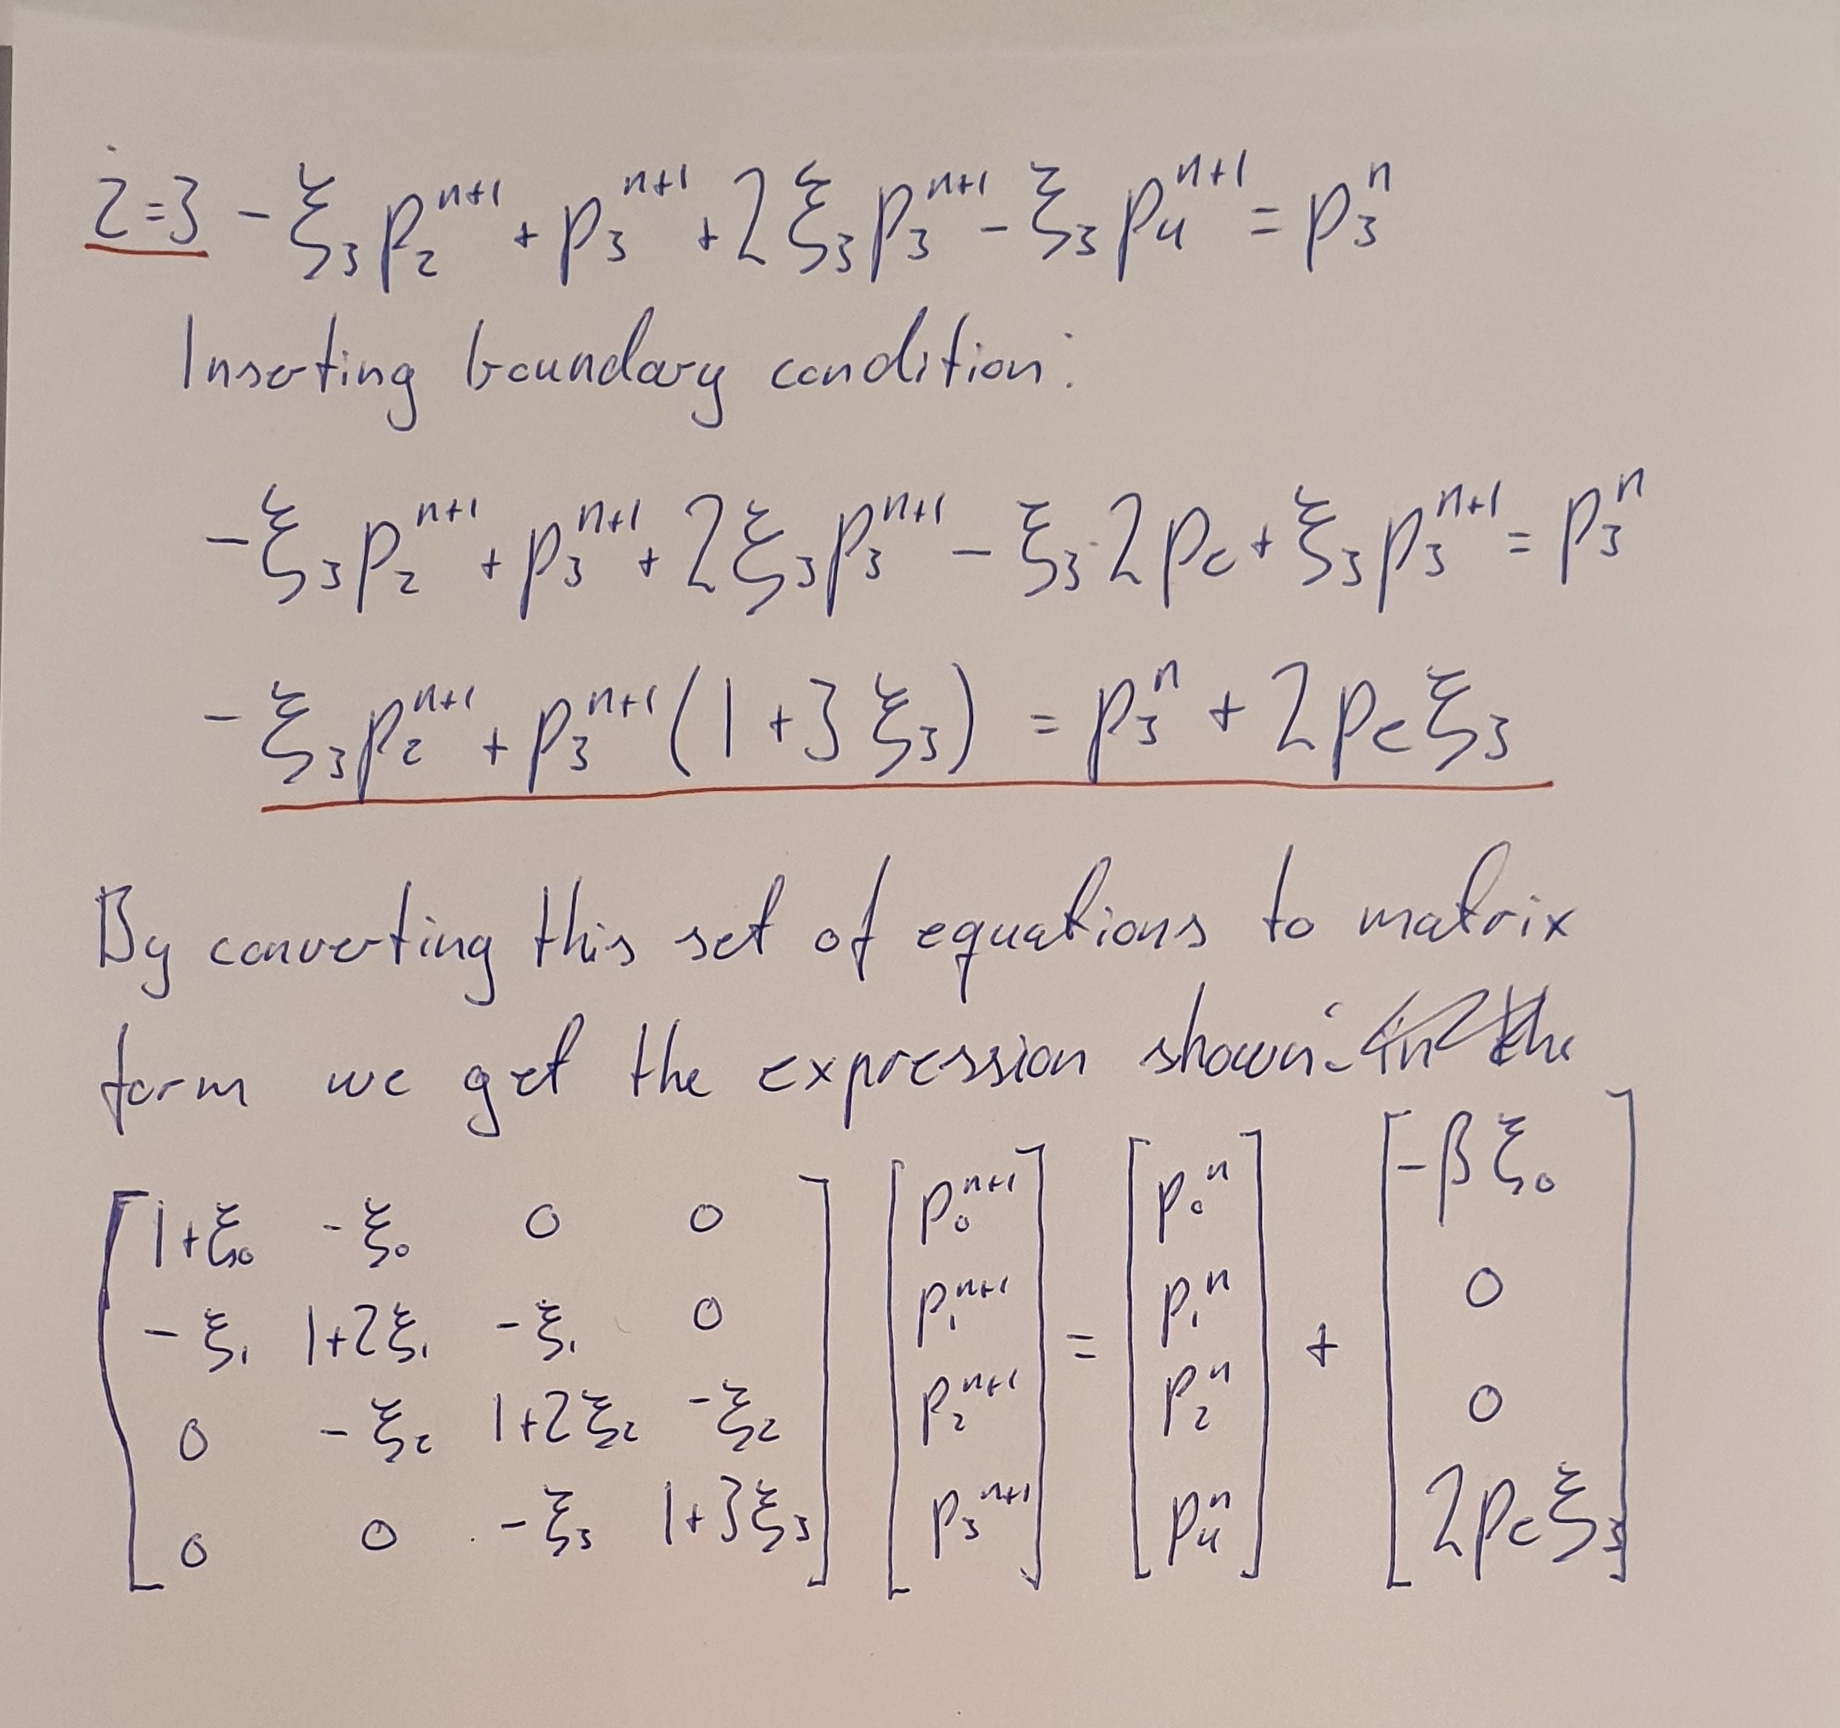 i=3 -ξ₃p₂ⁿ⁺¹ + p₃ⁿ⁺¹ + 2ξ₃p₃ⁿ⁺¹ - ξ₃p₄ⁿ⁺¹ = p₃ⁿ
Inserting boundary condition:
-ξ₃p₂ⁿ⁺¹ + p₃ⁿ⁺¹ + 2ξ₃p₃ⁿ⁺¹ - ξ₃·2p_e + ξ₃p₃ⁿ⁺¹ = p₃ⁿ
-ξ₃p₂ⁿ⁺¹ + p₃ⁿ⁺¹(1+3ξ₃) = p₃ⁿ + 2p_eξ₃
By converting this set of equations to matrix
form we get the expression shown: in the
[1+ξ₀ -ξ₀ 0 0] [p₀ⁿ⁺¹] [p₀ⁿ] [-βξ₀]
[-ξ₁ 1+2ξ₁ -ξ₁ 0] [p₁ⁿ⁺¹] = [p₁ⁿ] + [0]
[0 -ξ₂ 1+2ξ₂ -ξ₂] [p₂ⁿ⁺¹] [p₂ⁿ] [0]
[0 0 -ξ₃ 1+3ξ₃] [p₃ⁿ⁺¹] [p₄ⁿ] [2p_eξ₃]